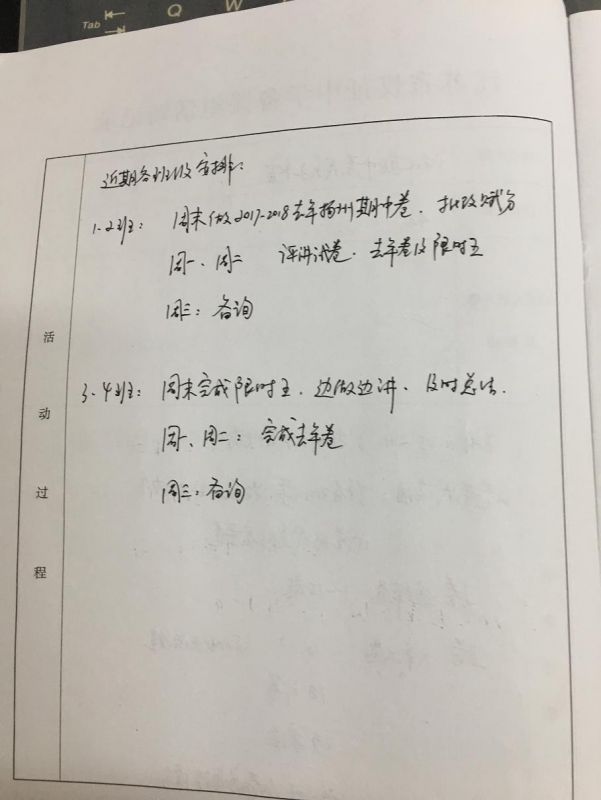 Tab
Q
W
近期各班级安排：
1-2班： 周末做2017-2018去年扬州期中卷，批改赋分
周一、周二 评讲试卷，去年卷及限时五
周三：备询
3-4班： 周末完成限时五，边做边讲、及时总结.
周一、周二：完成去年卷
周三：备询
活动过程